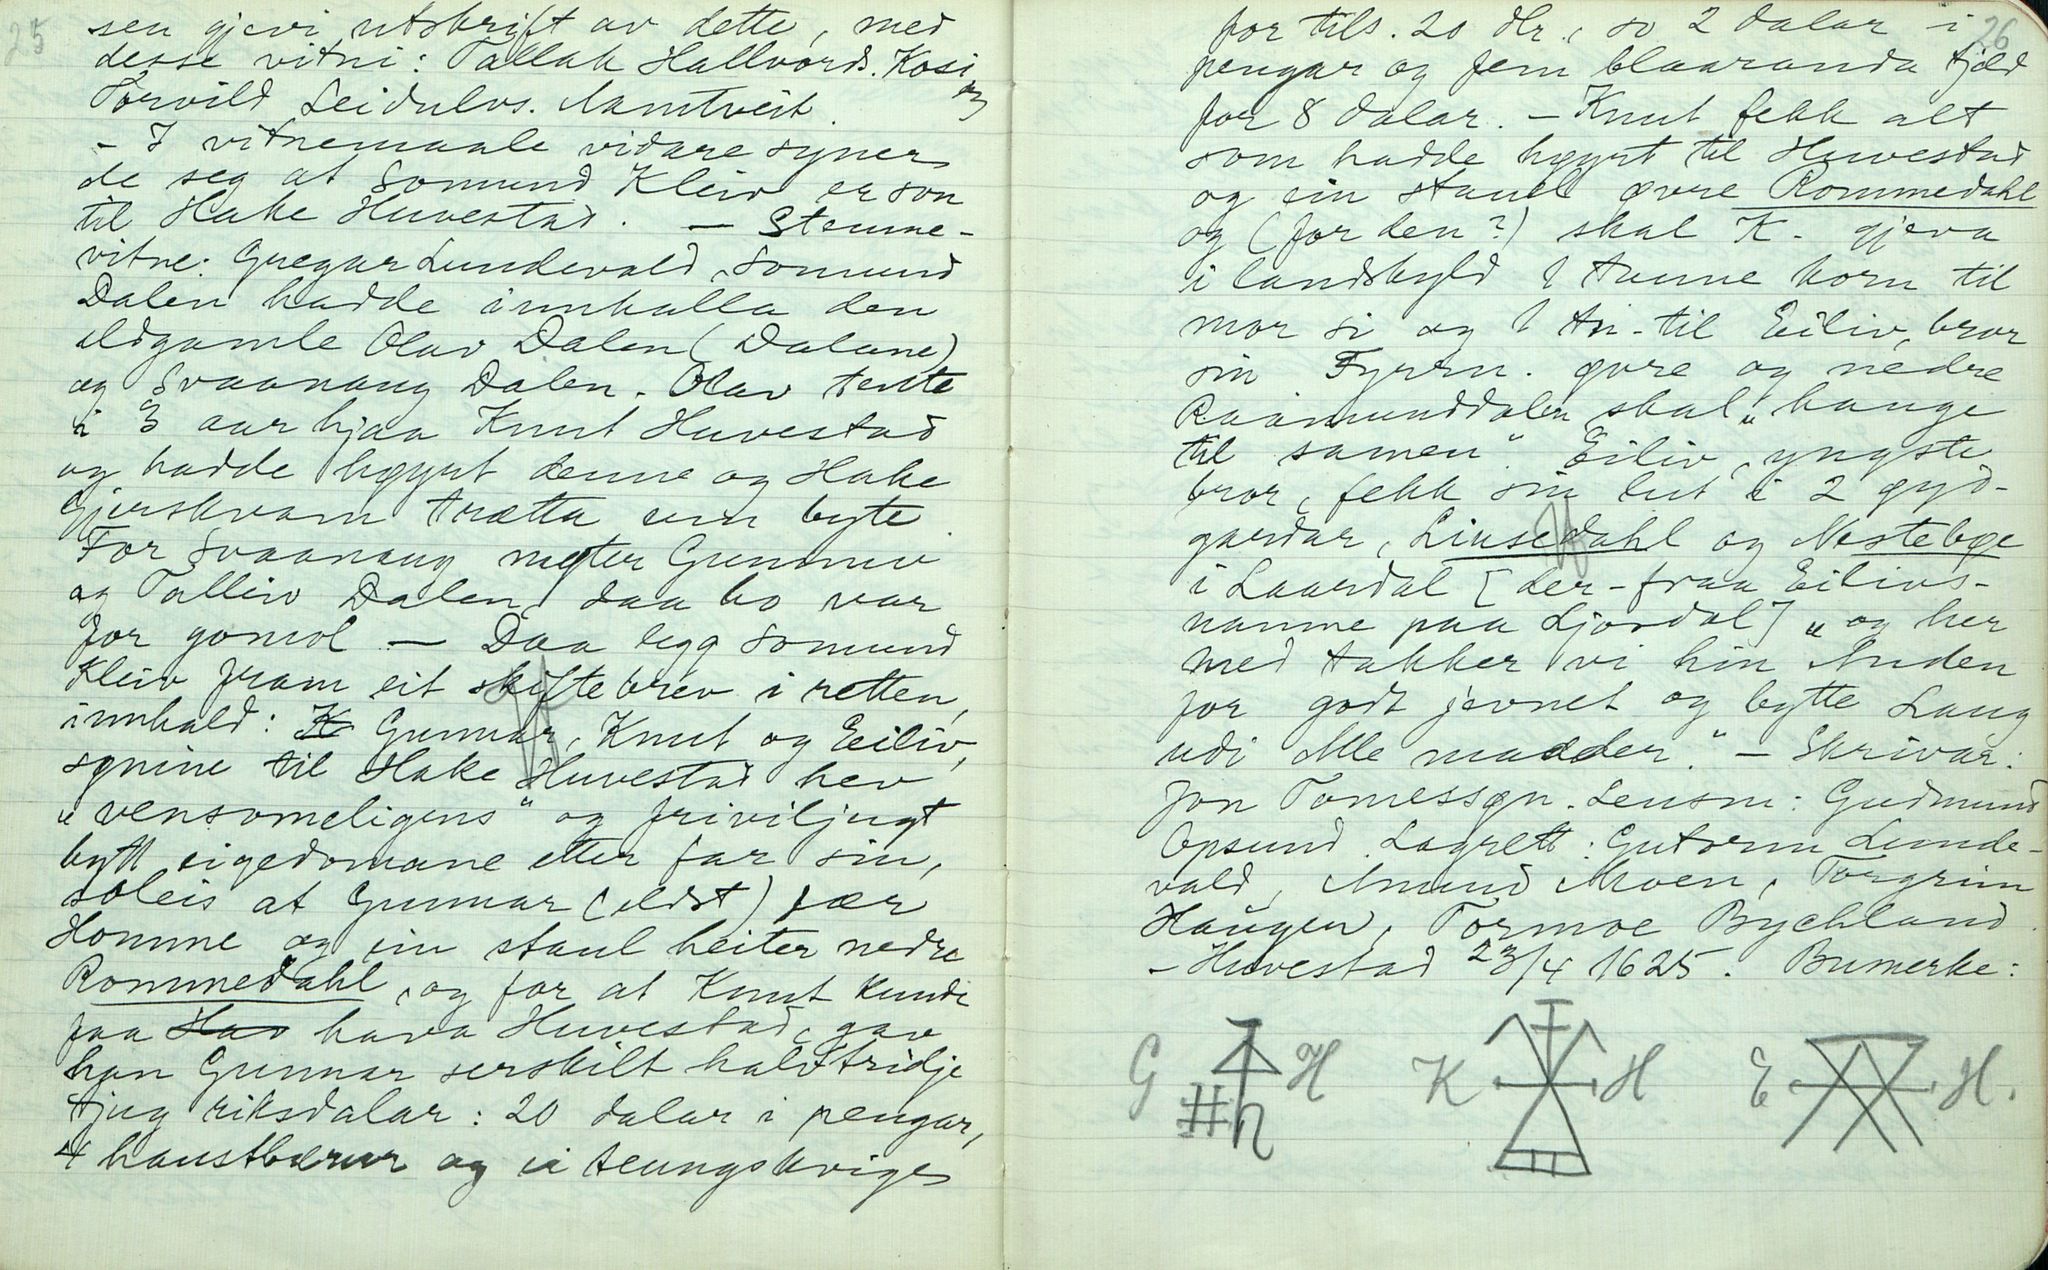 25
sen gjevi utskrift av dette, med
desse vitni: Tallak Hallvords. Kosi
Torvild Leidulvs. Mamtveit.
- I vitnemaale vidare syner
de seg at Somund Kleiv er son
til Hake Huvestad. — Stemne-
vitne: Gregar Lundevald, Somund
Dalen hadde innkalla den
eldgamle Olav Dalen (Dalane)
og Svaanaug Dalen. Olav tente
i 3 aar hjaa Knut Huvestad
og hadde høyrt denne og Hake
Gjerskvam trætta um byte.
For Svaanaug møter Gunnuv
og Talleiv Dalen, daa ho var
for gomol — Daa legg Somund
Kleiv fram eit skiftebrev i retten,
innhald: K Gunnar, Knut og Eiliv,
synine til Hake Huvestad hev
„vensomeligens" og friviljugt
bytt eigedomane etter far sin,
soleis at Gunnar (eldst) fær
Homme og ein staul heiter nedre
Rommedahl, og for at Knut kunde
faa Hav hava Huvestad, gav
han Gunnar serskilt halvtridje
tjug riksdalar: 20 dalar i pengar,
4 haustbærur og ei teungskvige
26
for tils. 20 dlr., so 2 dalar i
pengar og fem blaaranda fjeld
for 8 dalar. — Knut fekk alt
som hadde høyrt til Huvestad
og ein staul øvre Rommedahl
og (for den?) skal K. gjeva
i landskyld 1 tunne korn til
mor si og 1 tn. til Eiliv, bror
sin Fyrrn. øvre og nedre
Raamunddalen skal „hange
til samen". Eiliv, yngste
bror, fekk sin lut i 2 øyd-
gardar, Linsedahl og Nestebøe
i Laardal [der-fraa Eilivs-
namne paa Ljosdal] „og her
med takker vi hin Anden
for godt jevnet og bytte Laug
udi Alle maader." — Skrivar:
Jon Tomessøn. Lensm: Gudmund
Opsund. Lagrett: Gutorm Lunde-
vald, Amund Moen, Torgrim
Haugen, Tormoe Bychland.
— Huvestad 23/4 1625. Bumerke:
G H K H E H.